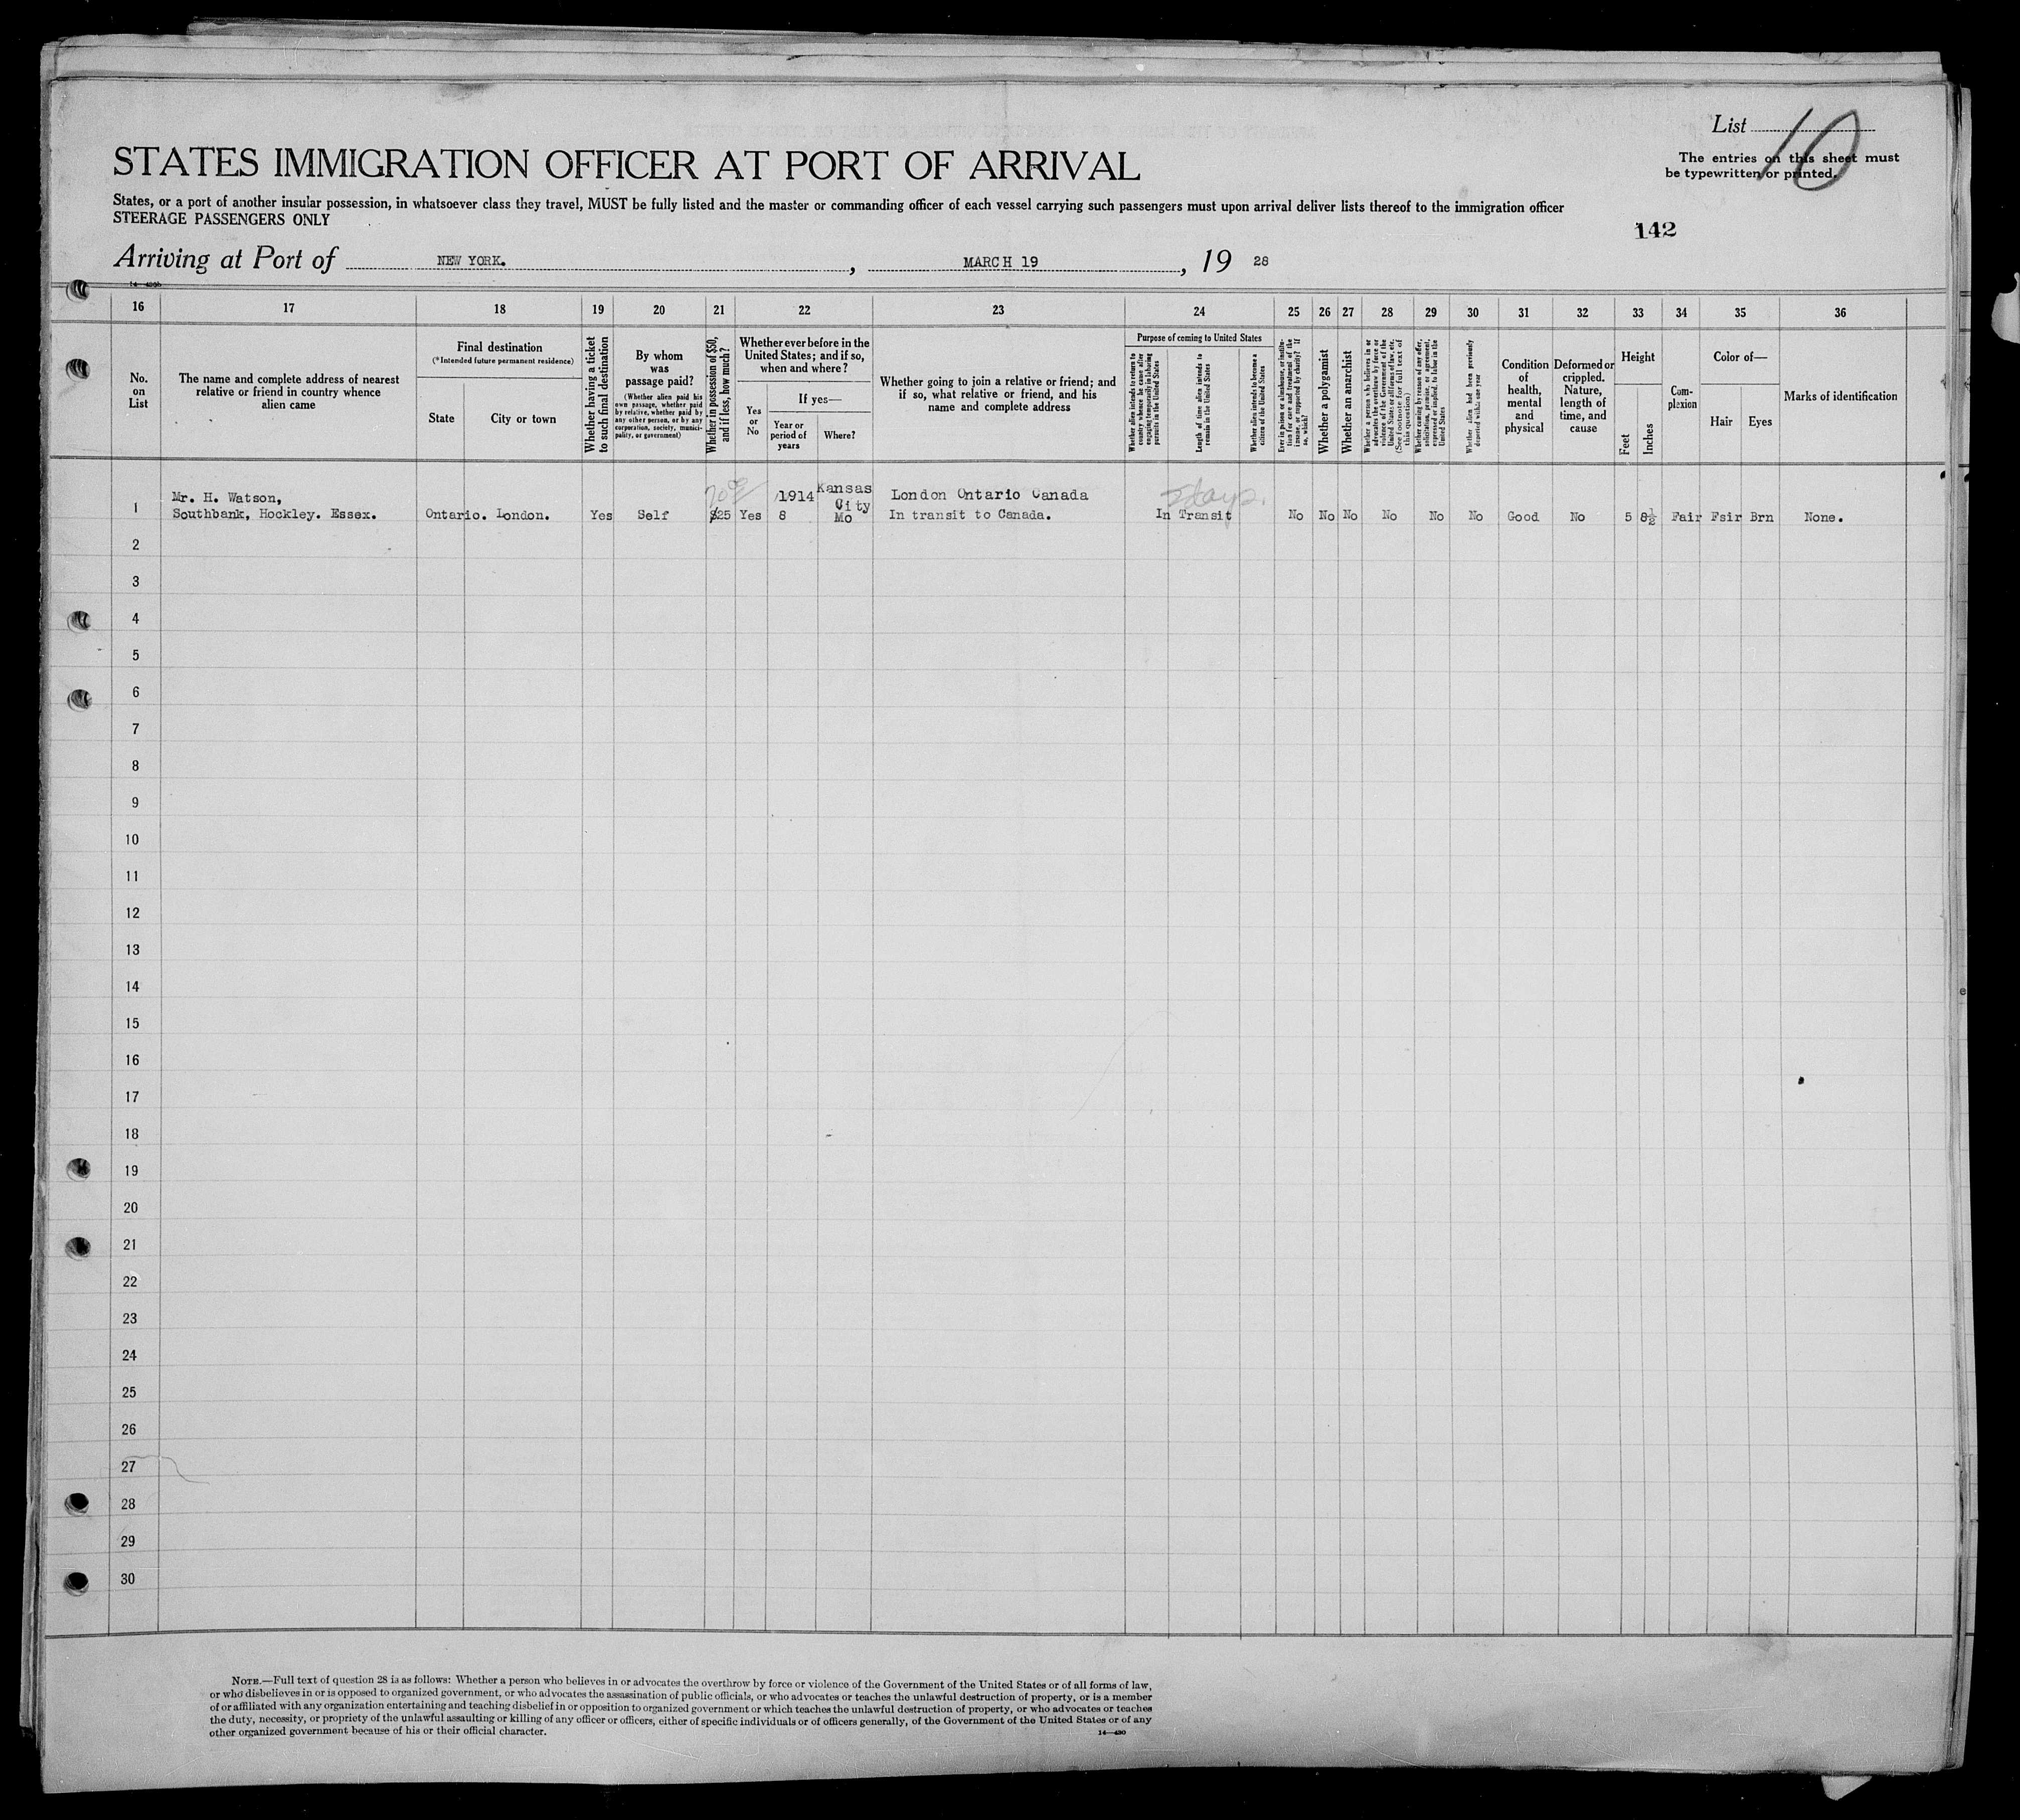 List 10
The entries on this sheet must
be typewritten or printed.
STATES IMMIGRATION OFFICER AT PORT OF ARRIVAL
States, or a port of another insular possession, in whatsoever class they travel, MUST be fully listed and the master or commanding officer of each vessel carrying such passengers must upon arrival deliver lists thereof to the immigration officer
STEERAGE PASSENGERS ONLY
142
Arriving at Port of NEW YORK. , MARCH 19 , 19 28
16 17 18 19 20 21 22 23 24 25 26 27 28 29 30 31 32 33 34 35 36
No.
on
List
The name and complete address of nearest
relative or friend in country whence
alien came
Final destination
(*Intended future permanent residence)
State
City or town
Whether having a ticket
to such final destination
By whom
was
passage paid?
(Whether alien paid his
own passage, whether paid
by relative, whether paid by
any other person, or by any
corporation, society, munici-
pality, or government)
Whether in possession of $50,
and if less, how much?
Whether ever before in the
United States; and if so,
when and where?
Yes
or
No
If yes—
Year or
period of
years
Where?
Whether going to join a relative or friend; and
if so, what relative or friend, and his
name and complete address
Purpose of coming to United States
Whether alien intends to return to
country whence he came after
engaging temporarily in laboring
pursuits in the United States
Length of time alien intends to
remain in the United States
Whether alien intends to become a
citizen of the United States
Ever in prison or almshouse, or institu-
tion for care and treatment of the
insane, or supported by charity? If
so, which?
Whether a polygamist
Whether an anarchist
Whether a person who believes in or
advocates the overthrow by force or
violence of the Government of the
United States or all forms of law, etc.
(See footnote for full text of
this question)
Whether coming by reason of any offer,
solicitation, promise, or agreement,
expressed or implied, to labor in the
United States
Whether alien had been previously
deported within one year
Condition
of
health,
mental
and
physical
Deformed or
crippled.
Nature,
length of
time, and
cause
Height
Feet
Inches
Com-
plexion
Color of—
Hair
Eyes
Marks of identification
1
Mr. H. Watson,
Southbank, Hockley. Essex.
Ontario. London.
Yes
Self
$25
Yes
1914
8
Kansas
City
Mo
London Ontario Canada
In transit to Canada.
days.
In Transit
No No No No No No Good No 5 8½ Fair Fsir Brn None.
2
3
4
5
6
7
8
9
10
11
12
13
14
15
16
17
18
19
20
21
22
23
24
25
26
27
28
29
30
NOTE.—Full text of question 28 is as follows: Whether a person who believes in or advocates the overthrow by force or violence of the Government of the United States or of all forms of law,
or who disbelieves in or is opposed to organized government, or who advocates the assassination of public officials, or who advocates or teaches the unlawful destruction of property, or is a member
of or affiliated with any organization entertaining and teaching disbelief in or opposition to organized government or which teaches the unlawful destruction of property, or who advocates or teaches
the duty, necessity, or propriety of the unlawful assaulting or killing of any officer or officers, either of specific individuals or of officers generally, of the Government of the United States or of any
other organized government because of his or their official character.
14—430